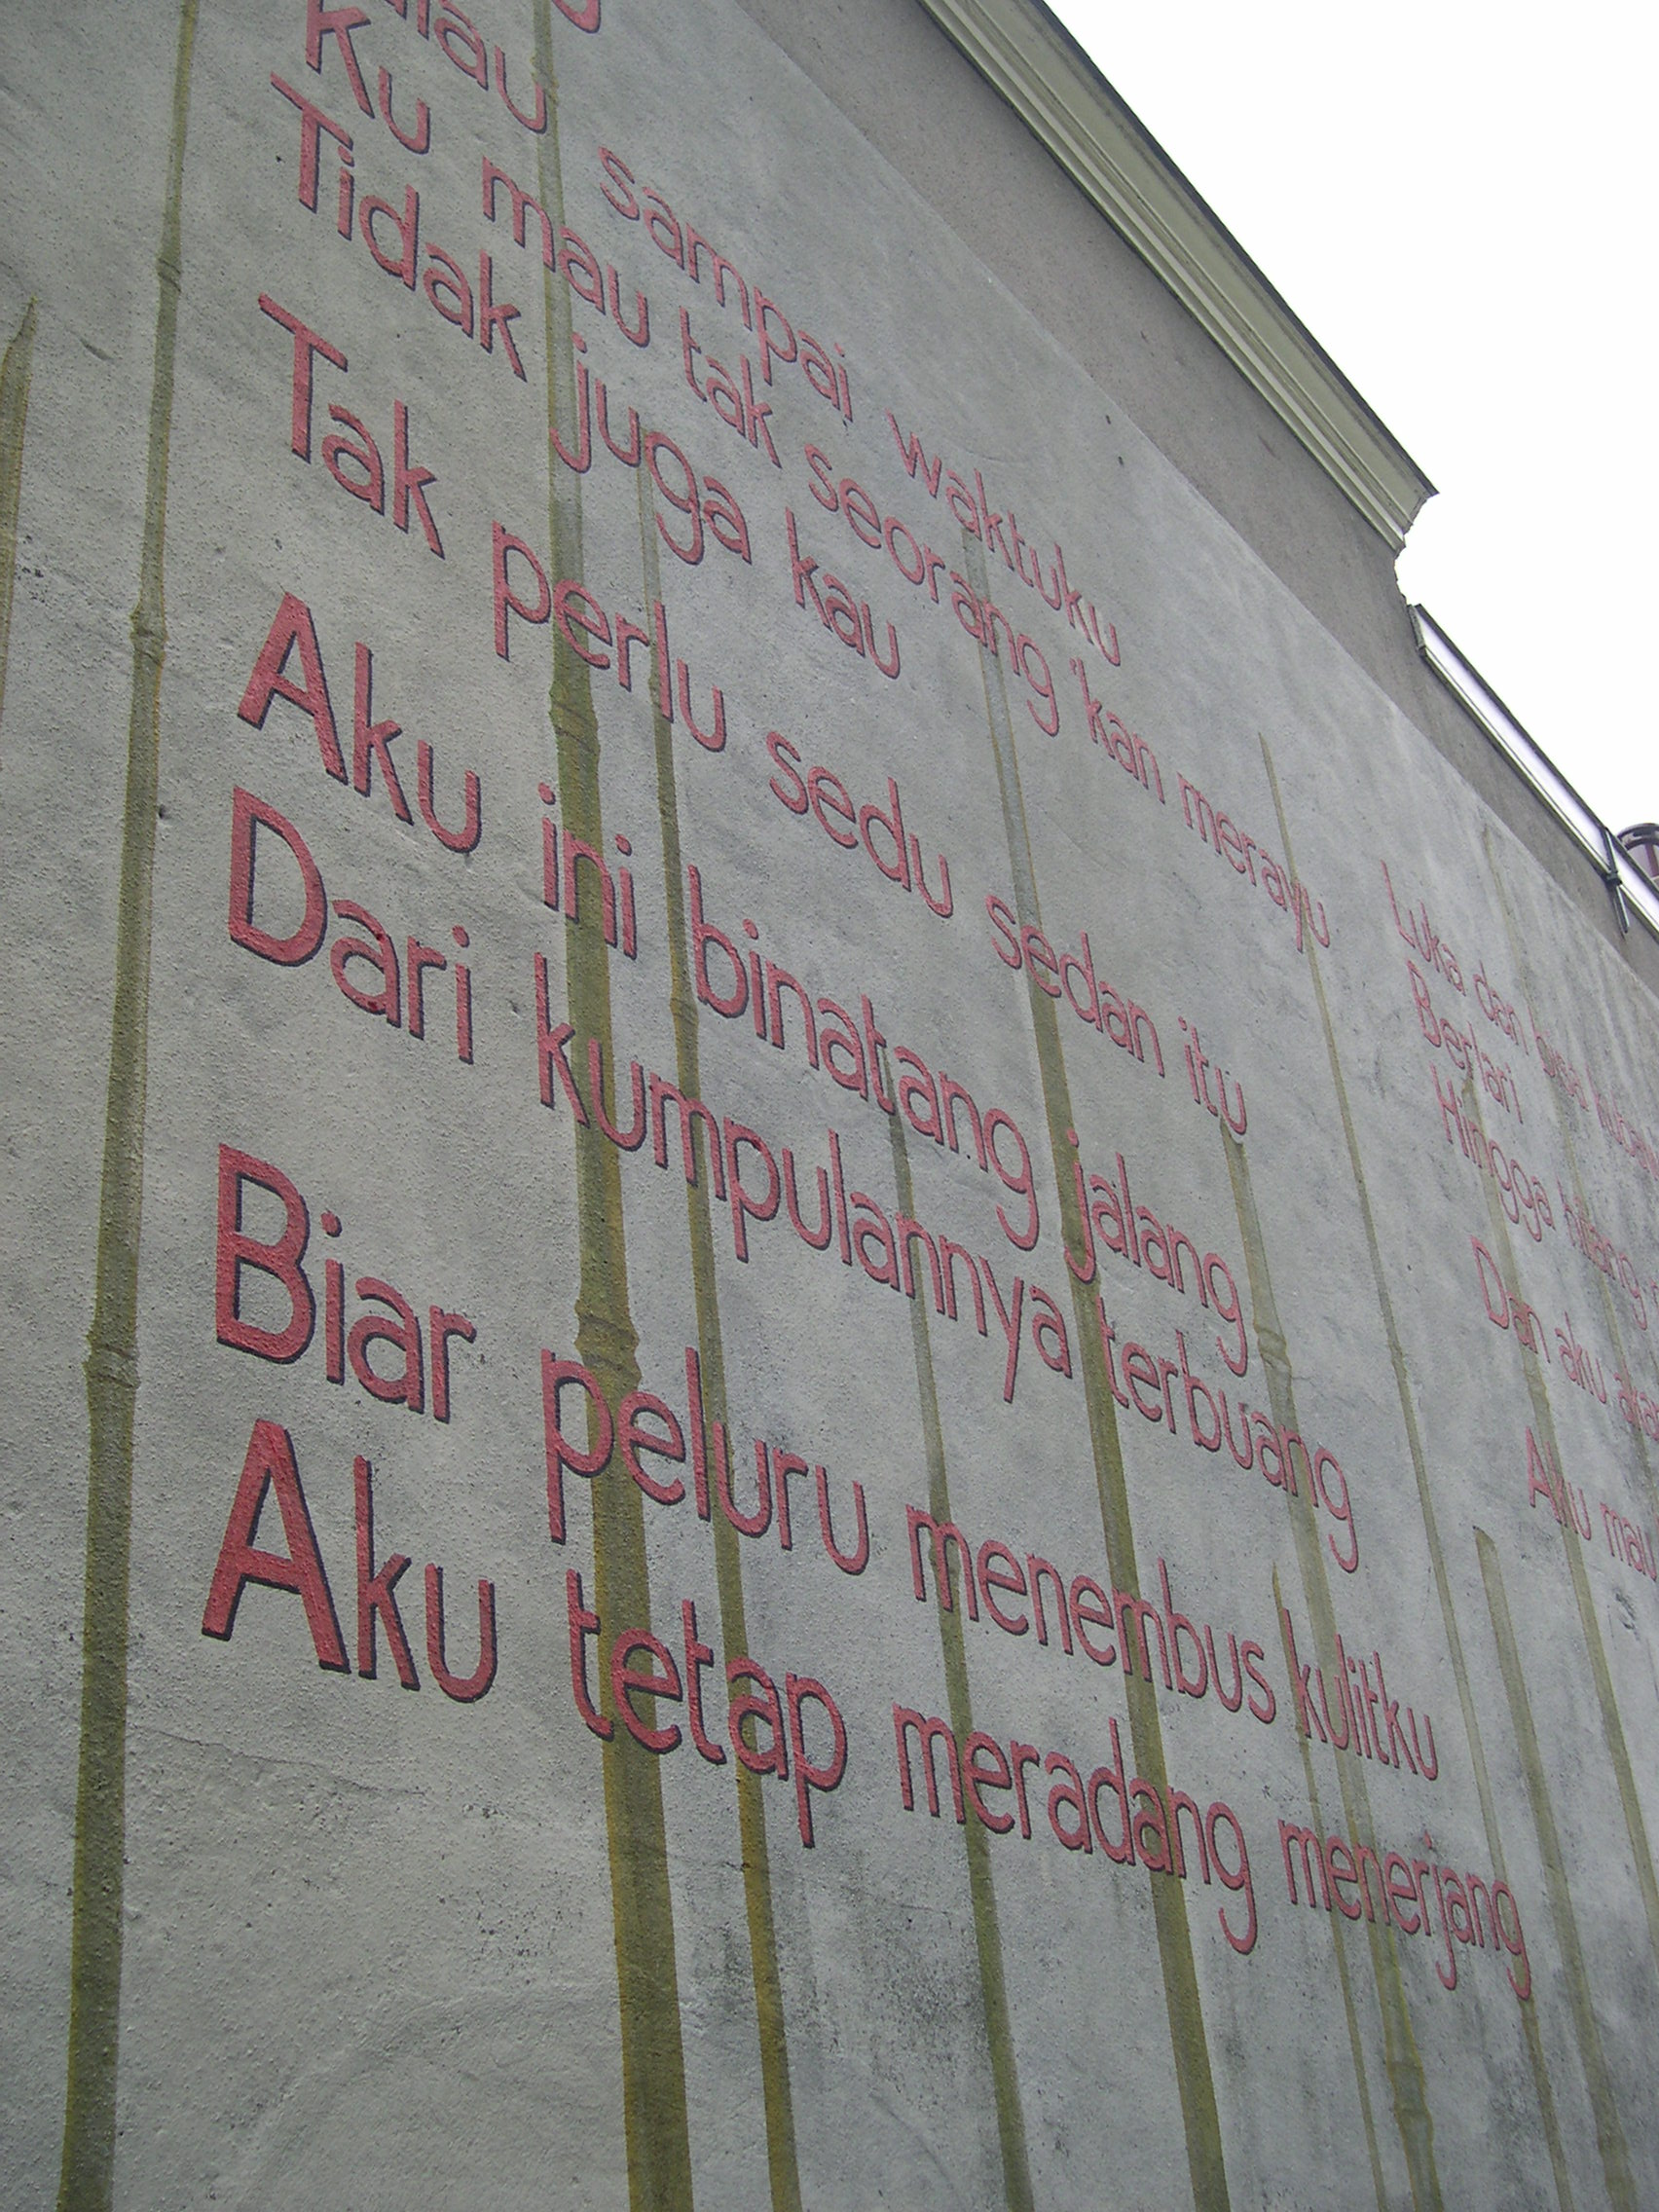 sampai waktuku
Ku mau tak seorang 'kan merayu
Tidak juga kau
Tak perlu sedu sedan itu
Aku ini binatang jalang
Dari kumpulannya terbuang
Biar peluru menembus kulitku
Aku tetap meradang menerjang
Luka dan bisa kubawa
Berlari
Hingga hilang
Dan aku akan
Aku mau